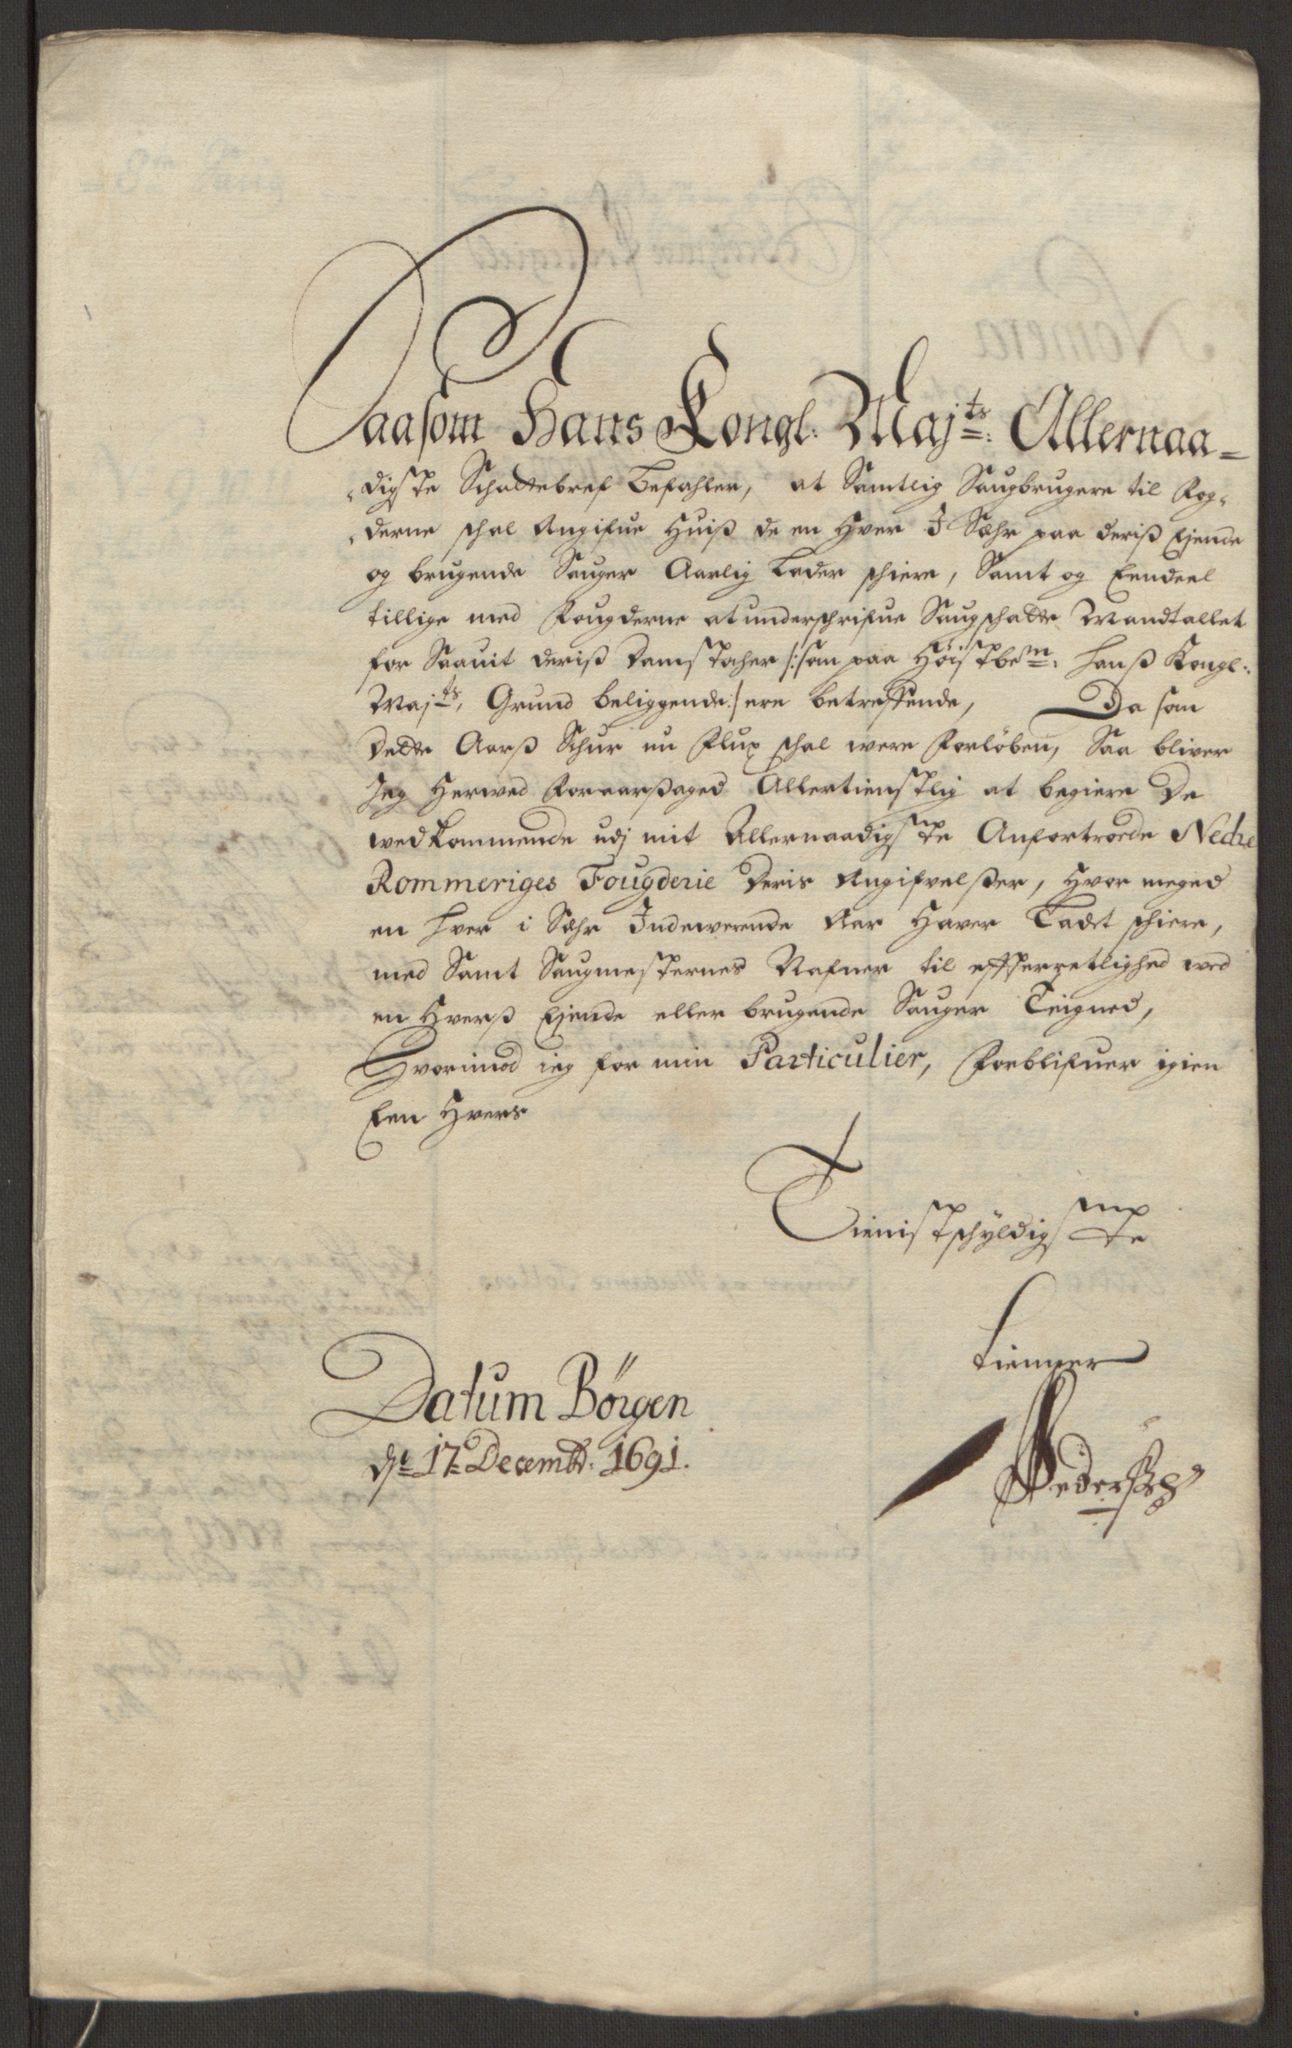 Saasom Hans Kongl: Maj:ts: Allernaa-
digste Schattebref Befahler, at Samtlig Saugbrugere til Fog-
derne schal Angifue Huiß de en Hver J Sæhr paa deriß Ejende
og brugende Sauger Aarlig Lader schiere, Samt og Eendeel
tillige med Fougderne at underschrifue Saugschatte Mandtallet
for Saauit deriß Damstocher /: som paa Høistbem: Hanß Kongl:
Maj:ts, Grund beliggende :/ ere betreffende, Da som
dette Aarß Schur nu Flux schal were Forløben, Saa bliver
Jeg Herwed Foraarßaged Allertienstlig at begiere De
wedkommende udj mit Allernaadigste Anfortroede Nedre
Rommeriges Fougderie Deris Angifvelßer, Hvor meged
en hver i Sæhr Indewerende Aar Haver Ladt schiere,
med Samt Saugmesternes Nafner til efterretlighed ved
en Hverß Ejende eller brugende Sauger Teigned,
Hvorimod ieg for min Particulier, Forblifuer igien
Een Hvers
Tienistschyldigste
tienner
Datum Börgen
d: 17 Decembr: 1691.
Pederss